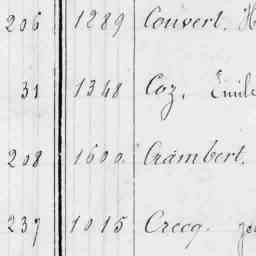 206 1289 Couvert. H
31 1348 Coz. Emile
208 1600 Crambert.
237 1015 Crecq.